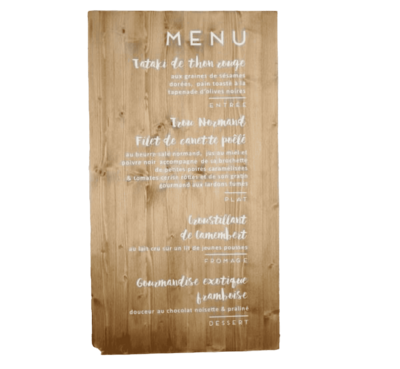 MENU
Tataki de thon rouge
aux graines de sésames
dorées, pain toasté à la
tapenade d'olives noires
ENTRÉE
Trou Normand
Filet de canette poêlé
au beurre salé normand, jus au miel et
poivre noir accompagné de sa brochette
de petites poires caramélisées
& tomates cerise rôties et de son grata
gourmand aux lardons fumés
PLAT
Croustillant
de Camembert
au lait cru sur un lit de jeunes pousses
FROMAGE
Gourmandise exotique
framboise
douceur au chocolat noisette & praliné
DESSERT